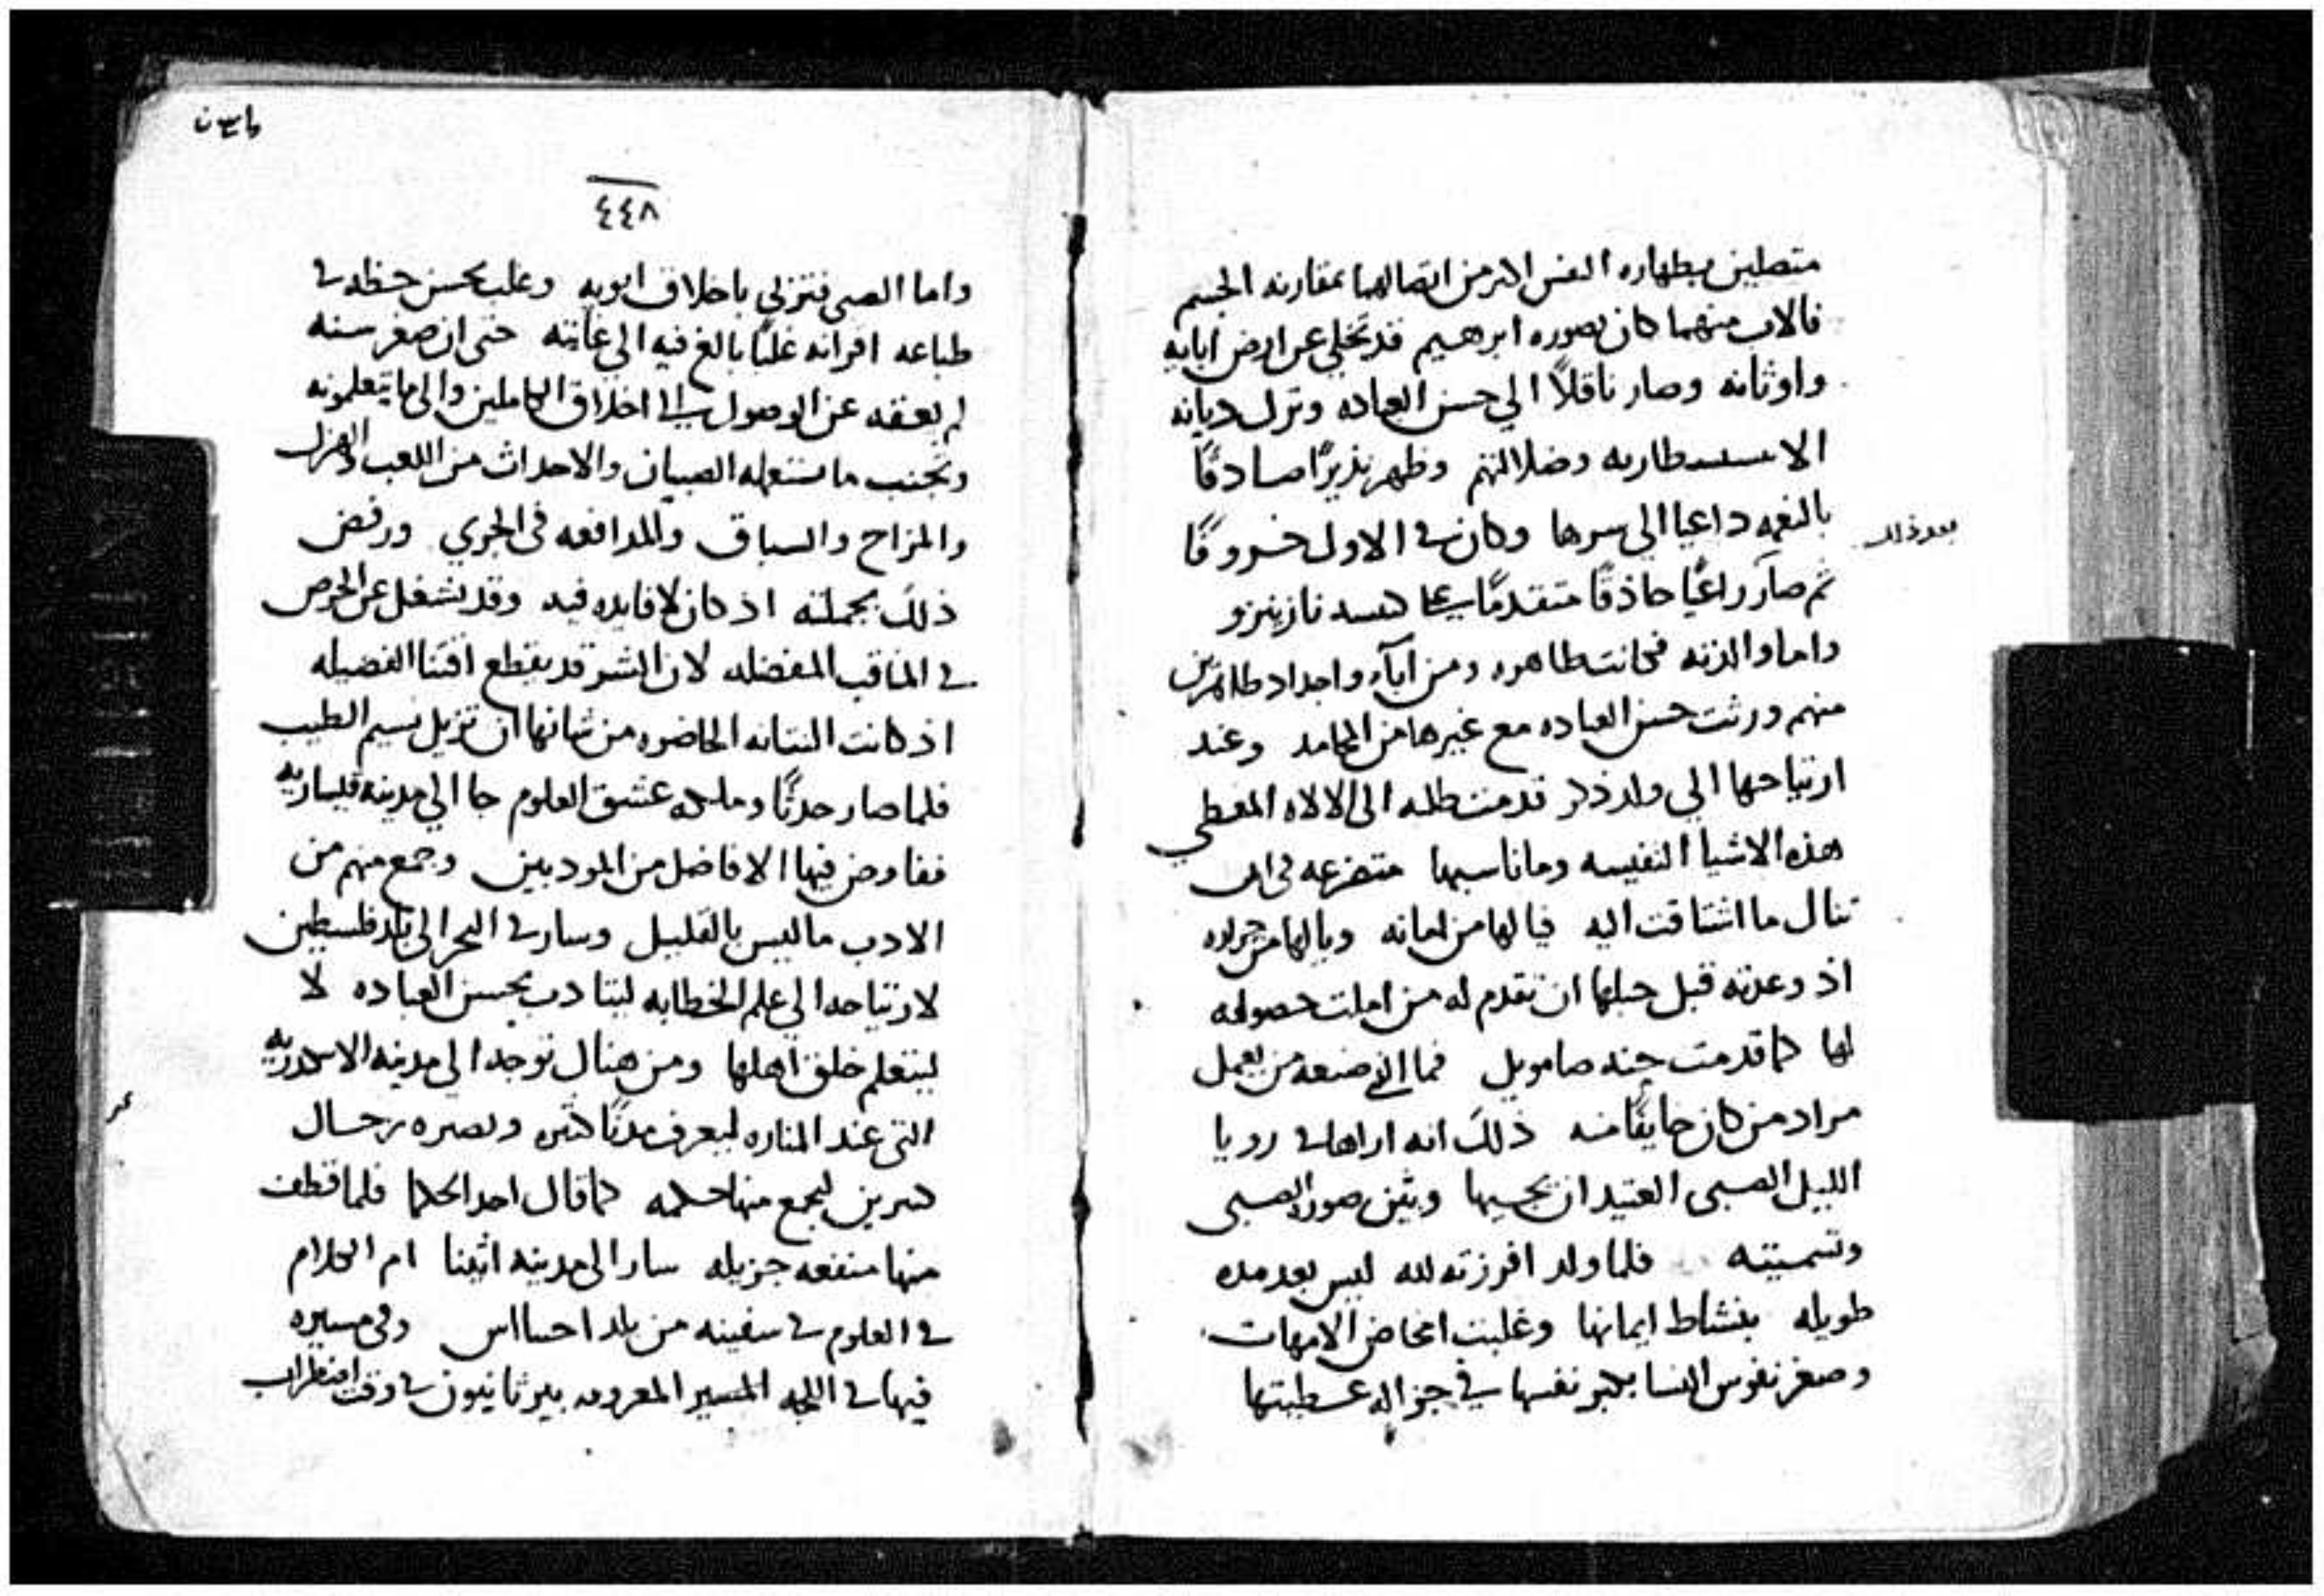 متصلين بطهاره النفس اكثر من اتصالهما بمقارنه الجسم
فالاب منهما كان بصوره ابرهيم قد تخلي عن ارض ابايه
واوثانه وصار ناقلاً الي حسن العباده وترك ديانه
وضلالتهم وظهر نذيرًا صادقًا
بالنعمه داعيا الى سرها وكان في الاول خروفًا
بعد ذلك
ثم صار راعيًا حاذقًا متقدمًا على نازينزو
واما والدته فكانت طاهره ومن ابآء واجداد طاهرين
منهم ورثت حسن العباده مع غيرها من المحامد وعند
ارتياحها الي ولد ذكر قدمت طلبه الى الالاه المعطي
هذه الاشيا النفيسه وما ناسبها متضرعه في ان
تنال ما اشتاقت اليه فيا لها من امانه ويا لها من
اذ وعدته قبل حبلها ان تقدم له من املت حصوله
لها كما قدمت حنه صامويل فما الذي صنعه من يعمل
مراد من كان خايفًا منه ذلك انه اراها في رويا
الليل الصبى العتيد ان يجيها وبين صوره الصبى
وتسميته فلما ولد افرزته لله ليس بعد مده
طويله بنشاط ايمانها وغلبت امخاض الامهات
وصغر نفوس النسا بكبر نفسها في جزاله عطيتها
٤٤٨
واما الصبى فتزلي باخلاق ابويه وغلب بحسن حظه في
طباعه اقرانه غلبًا بالغ فيه الى غايته حتى ان صغر سنه
لم يعقه عن الوصول الى اخلاق الكاملين والى ما يتعلمونه
وتجنب ما يستعمله الصبيان والاحداث من اللعب والهزل
والمزاح والسباق والمدافعه في الجري ورفض
ذلك بجملته اذ كان لا فايده فيه وقد تشغل عن الحرص
في المناقب المفضله لان الشر قد يقطع اقتنا الفضيله
اذ كانت النتانه الحاضره من شانها ان تزيل نسيم الطيب
فلما صار حدثًا وملكه عشق العلوم جا الي مدينه قيساريه
ففاوض فيها الافاضل من المودبين وجمع منهم من
الادب ما ليس بالقليل وسار في البحر الى بلد فلسطين
لارتياحه الي علم الخطابه ليتادب بحسن العباده لا
ليتعلم خلق اهلها ومن هناك توجه الى مدينه الاسكندريه
التى عند المناره ليعرف مدنًا كثيره وبصره رجال
كثيرين ليجمع منها حكمه كما قال احد الحكما فلما قطف
منها منفعه جزيله سار الى مدينه اثينا ام الكلام
في العلوم في سفينه من بلد وفي مسيره
فيها في اللجه المسير المعروف ببرثانيون في وقت اضطراب